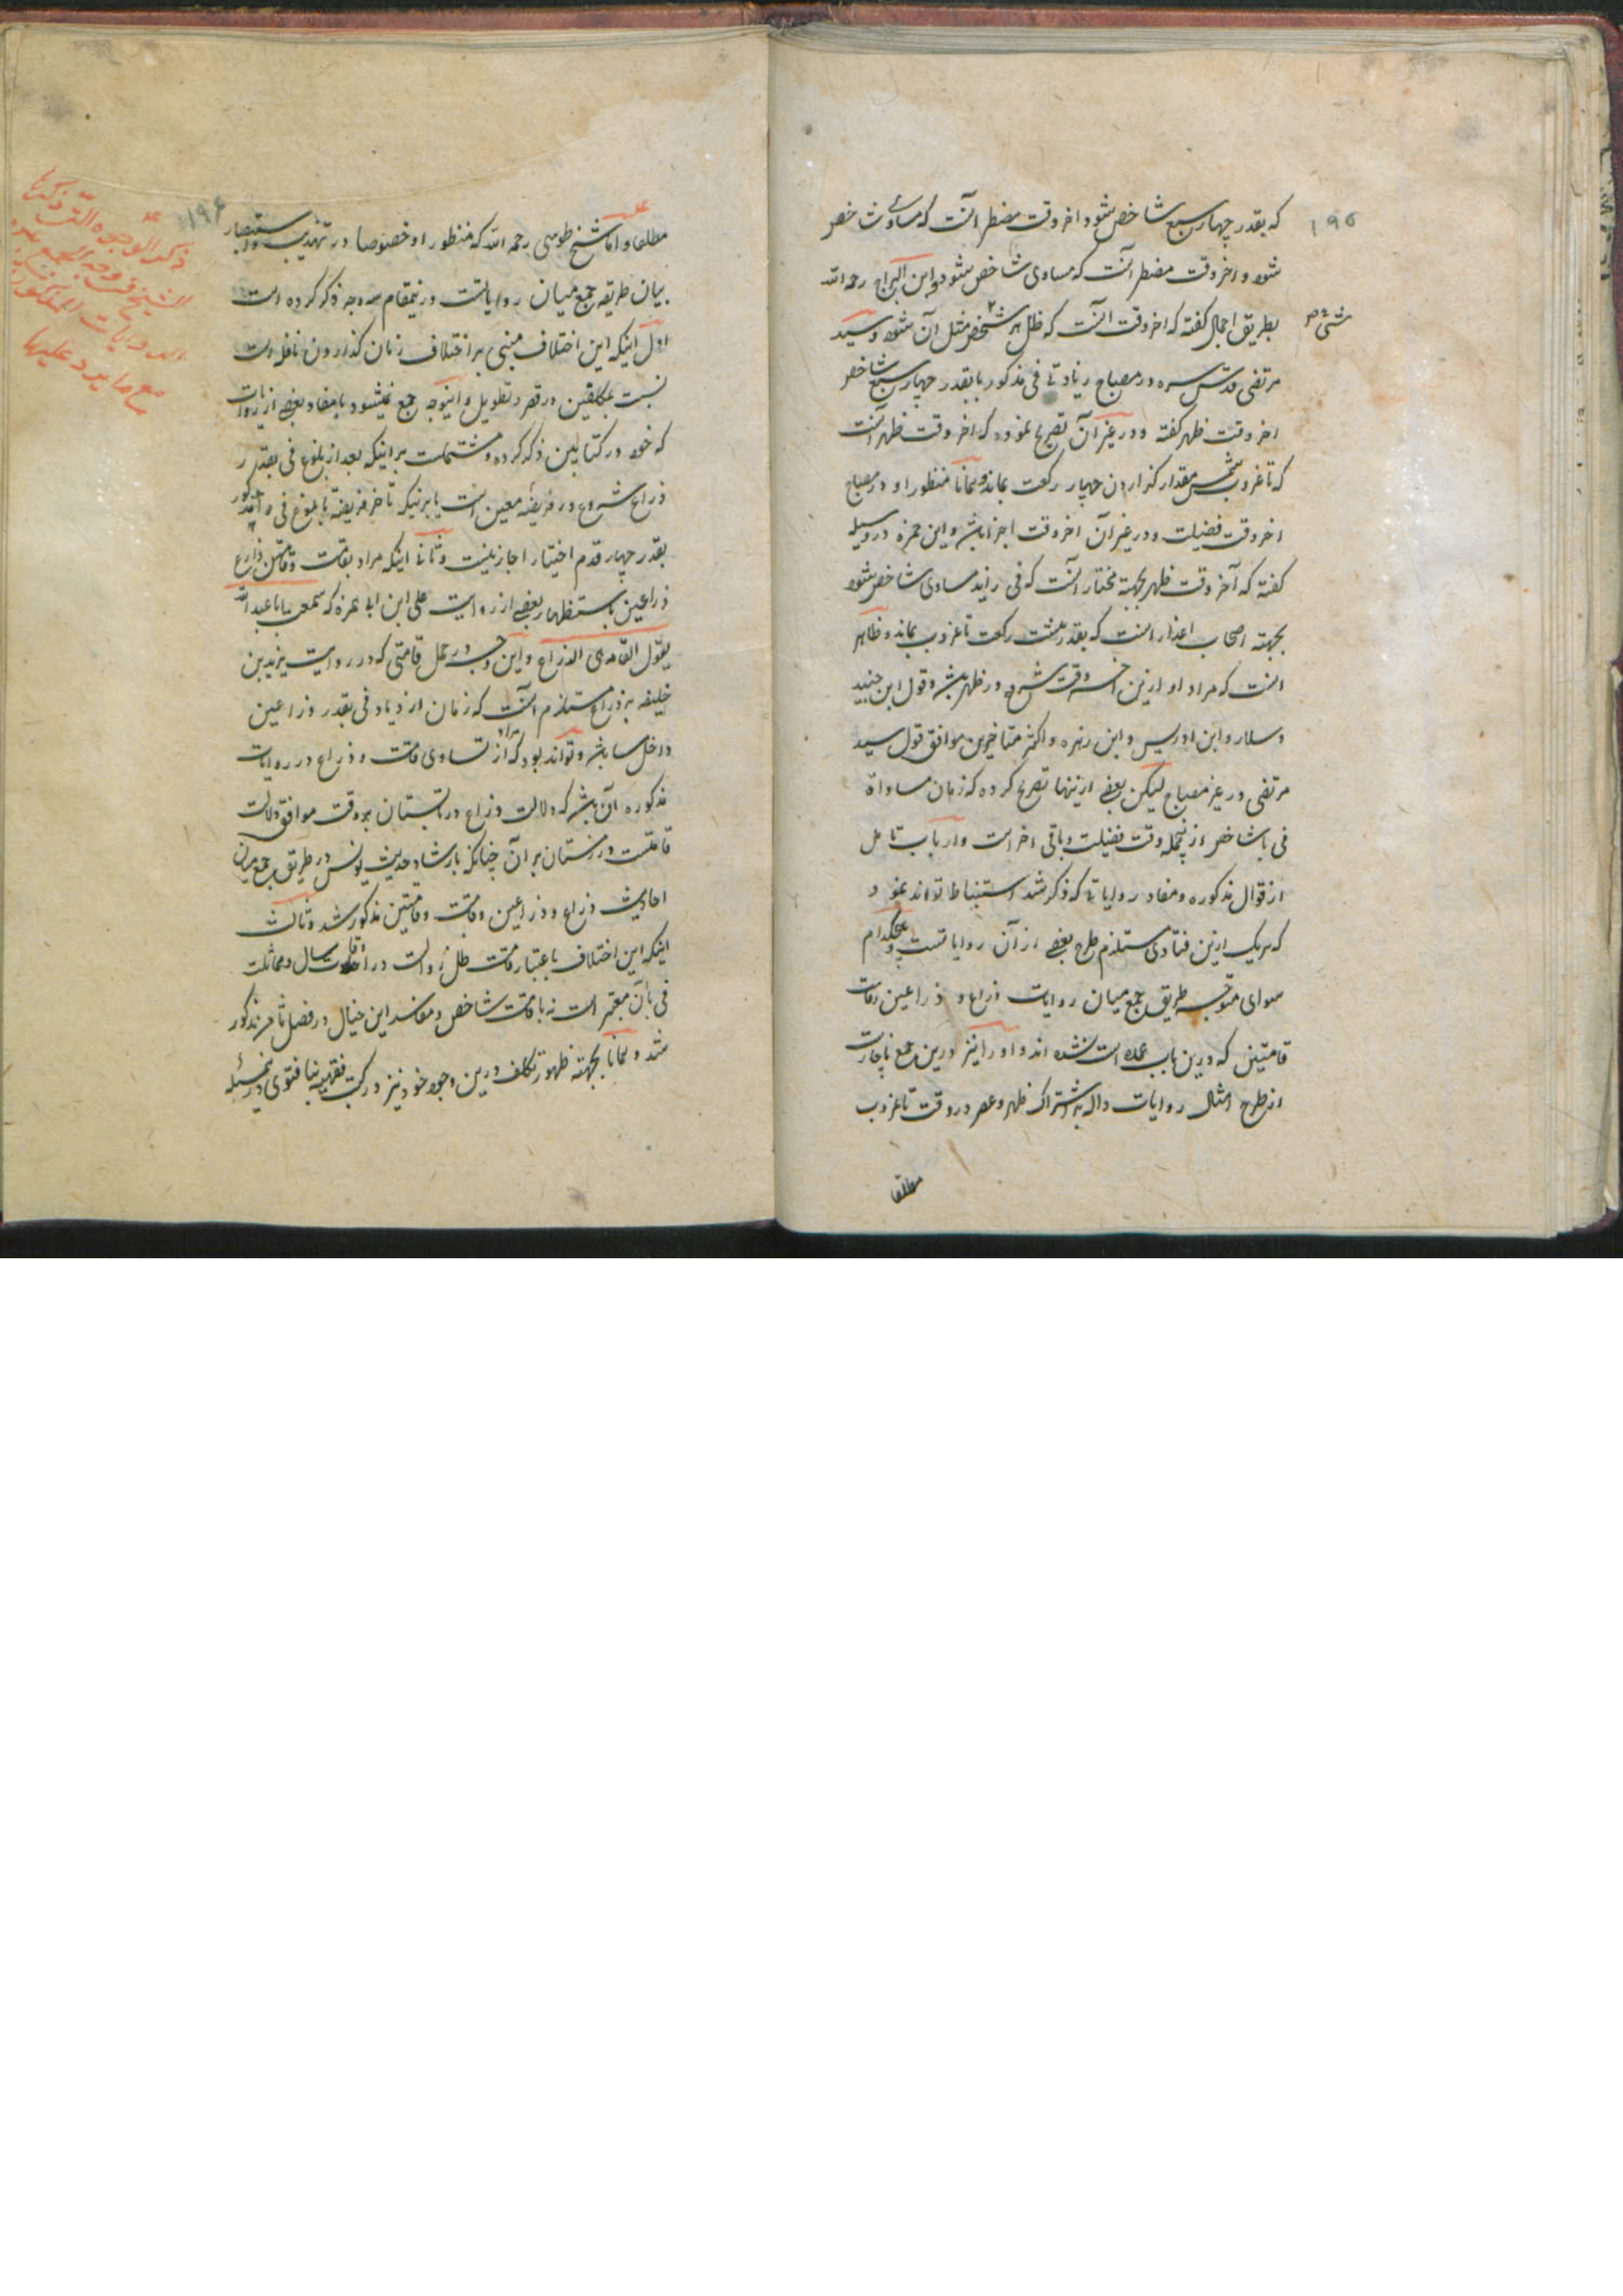 ۱۹۵
که بقدر چهار سبع شاخص شود اخر وقت مضطر انست که مساوی شاخص
شود و اخر وقت مضطر انست که مساوی شاخص شود و ابن البراج رحمه الله
بطریق اجمال گفته که اخر وقت انست که ظل هر شخص مثل آن شود و سید
شیء
مرتضی قدس سره در مصباح زیادتی فی مذکور با بقدر چهار سبع شاخص
اخر وقت ظهر گفته و در غیر آن تصریح نموده که اخر وقت ظهر انست
که تا غروب شمس مقدار گذاردن چهار رکعت بماند و همانا منظور او در مصباح
اخر وقت فضیلت و در غیر آن اخر وقت اجزا باشد و ابن حمزه در وسیله
گفته که آخر وقت ظهر بجهته مختار انست که فی زاید مساوی شاخص شود
بجهته اصحاب اعذار انست که بقدر هشت رکعت تا غروب بماند و ظاهر
انست که مراد او ازین اخر وقت شروع در ظهر باشد و قول ابن جنید
و سلار و ابن ادریس و ابن زهره و اکثر متاخرین موافق قول سید
مرتضی در غیر مصباح لیکن بعضی ازینها تصریح کرده که زمان مساواة
فی با شاخص از نجمله وقت فضیلت و باقی اخر است و ارباب تامل
از قوال مذکوره و مفاد روایاتی که ذکر شد استنباط تواند نمود
که هریک ازین فتاوی مستلزم طرح بعضی از آن روایاتست و هیچکدام
سوای متوجه طریق جمع میان روایات ذراع و ذراعین و قامت
قامتین که درین باب عمده است نشده اند و او را نیز درین جمع ناچارست
از طرح امثال روایات داله بر اشتراک ظهر و عصر در وقت تا غروب
مطلقا
۱۹۶
مطلقا و اما شیخ طوسی رحمه الله که منظور او خصوصا در تهذیب و استبصار
بیان طریقه جمع میان روایاتست درینمقام سه وجه ذکر کرده است
اول اینکه این اختلاف مبنی بر اختلاف زمان گذاردن نافله است
نسبت بمکلفین در قصر و تطویل و اینوجه جمع نمیشود با مفاد بعضی از روایات
که خود در کتابین ذکر کرده و مشتملست بر اینکه بعد از بلوغ فی بقدر
ذراع شروع در فریضه معین است یا برینکه تاخیر فریضه تا بلوغ فی
بقدر چهار قدم اختیار اجاز نیست و ثانیا اینکه مراد بقامت و قامتین ذراع
ذراعین باستظهار بعضی از روایت علی ابن ابی حمزه که سمعت اباعبدالله
یقول القامة هی الذراع و این وجه در حمل قامتی که در روایت یزید بن
خلیفه بذراع مستلزم انست که زمان ازدیاد فی بقدر ذراعین
داخل مسا باشد و تواند بود که مراد از تساوی قامت و ذراع در روایات
مذکوره آن باشد که دلالت ذراع در تابستان بر وقت موافق دلالت
قامتست در زمستان بر آن چنانکه بارشاد حدیث یونس در طریق جمع میان
احادیث ذراع و ذراعین و قامت و قامتین مذکور شد و ثالث
اینکه این اختلاف باعتبار قامت ظل زوالست در اوقات سال و مماثلت
فی بآن معتبر است نه با قامت شاخص و مفاسد این خیال در فصل ثامن مذکور
شد و همانا بجهته ظهور تکلف درین وجوه خود نیز در کتب فقهیه بنا فتوی درینمسئله
ذکر الوجوه التی ذکرها
الشیخ فی وجه الجمع بین
الروایات المذکورة
مع ما یرد علیها